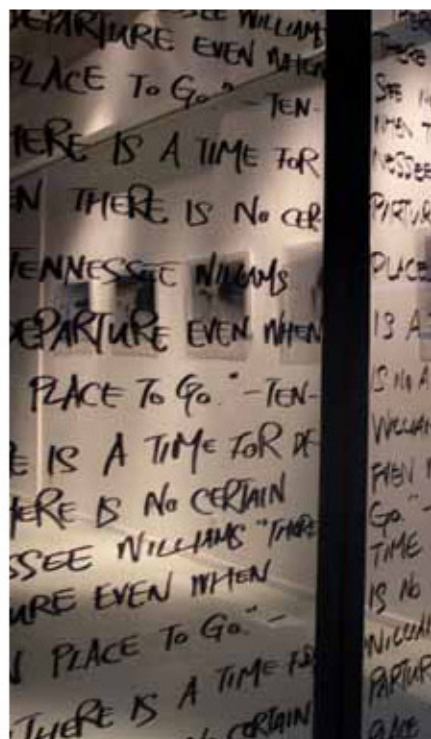 SEE WILLIAMS
DEPARTURE EVEN WHEN
PLACE TO GO." -TEN-
HERE IS A TIME FOR
N THERE IS NO CER-
TENNESSEE WILLIAMS
DEPARTURE EVEN WHEN
PLACE TO GO." -TEN-
E IS A TIME FOR DE-
HERE IS NO CERTAIN
SSEE WILLIAMS "THERE
URE EVEN WHEN
N PLACE TO GO." -
THERE IS A TIME FOR
NO CERTAIN
THERE
SEE
WHEN T
NESSEE
PARTUR
PLACE
IS A
IS NO
WILLIAM
EVEN
GO." -
TIME
IS NO
WILLIAM
PARTUR
PLACE